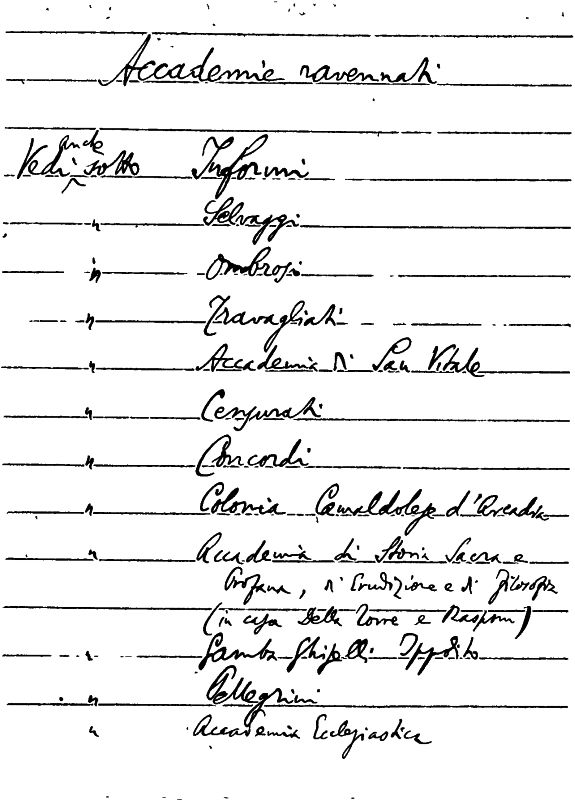 Accademie ravennati
Vedi anche sotto Informi
" Selvaggi
" Ombrosi
" Travagliati
" Accademia di San Vitale
" Censurati
" Concordi
" Colonia Camaldolese d'Arcadia
" Accademia di Storia Sacra e
Profana, di Erudizione e di Filosofia
(in casa Della Torre e Rasponi)
" Gamba Ghiselli Ippolito
" Pellegrini
" Accademia Ecclesiastica